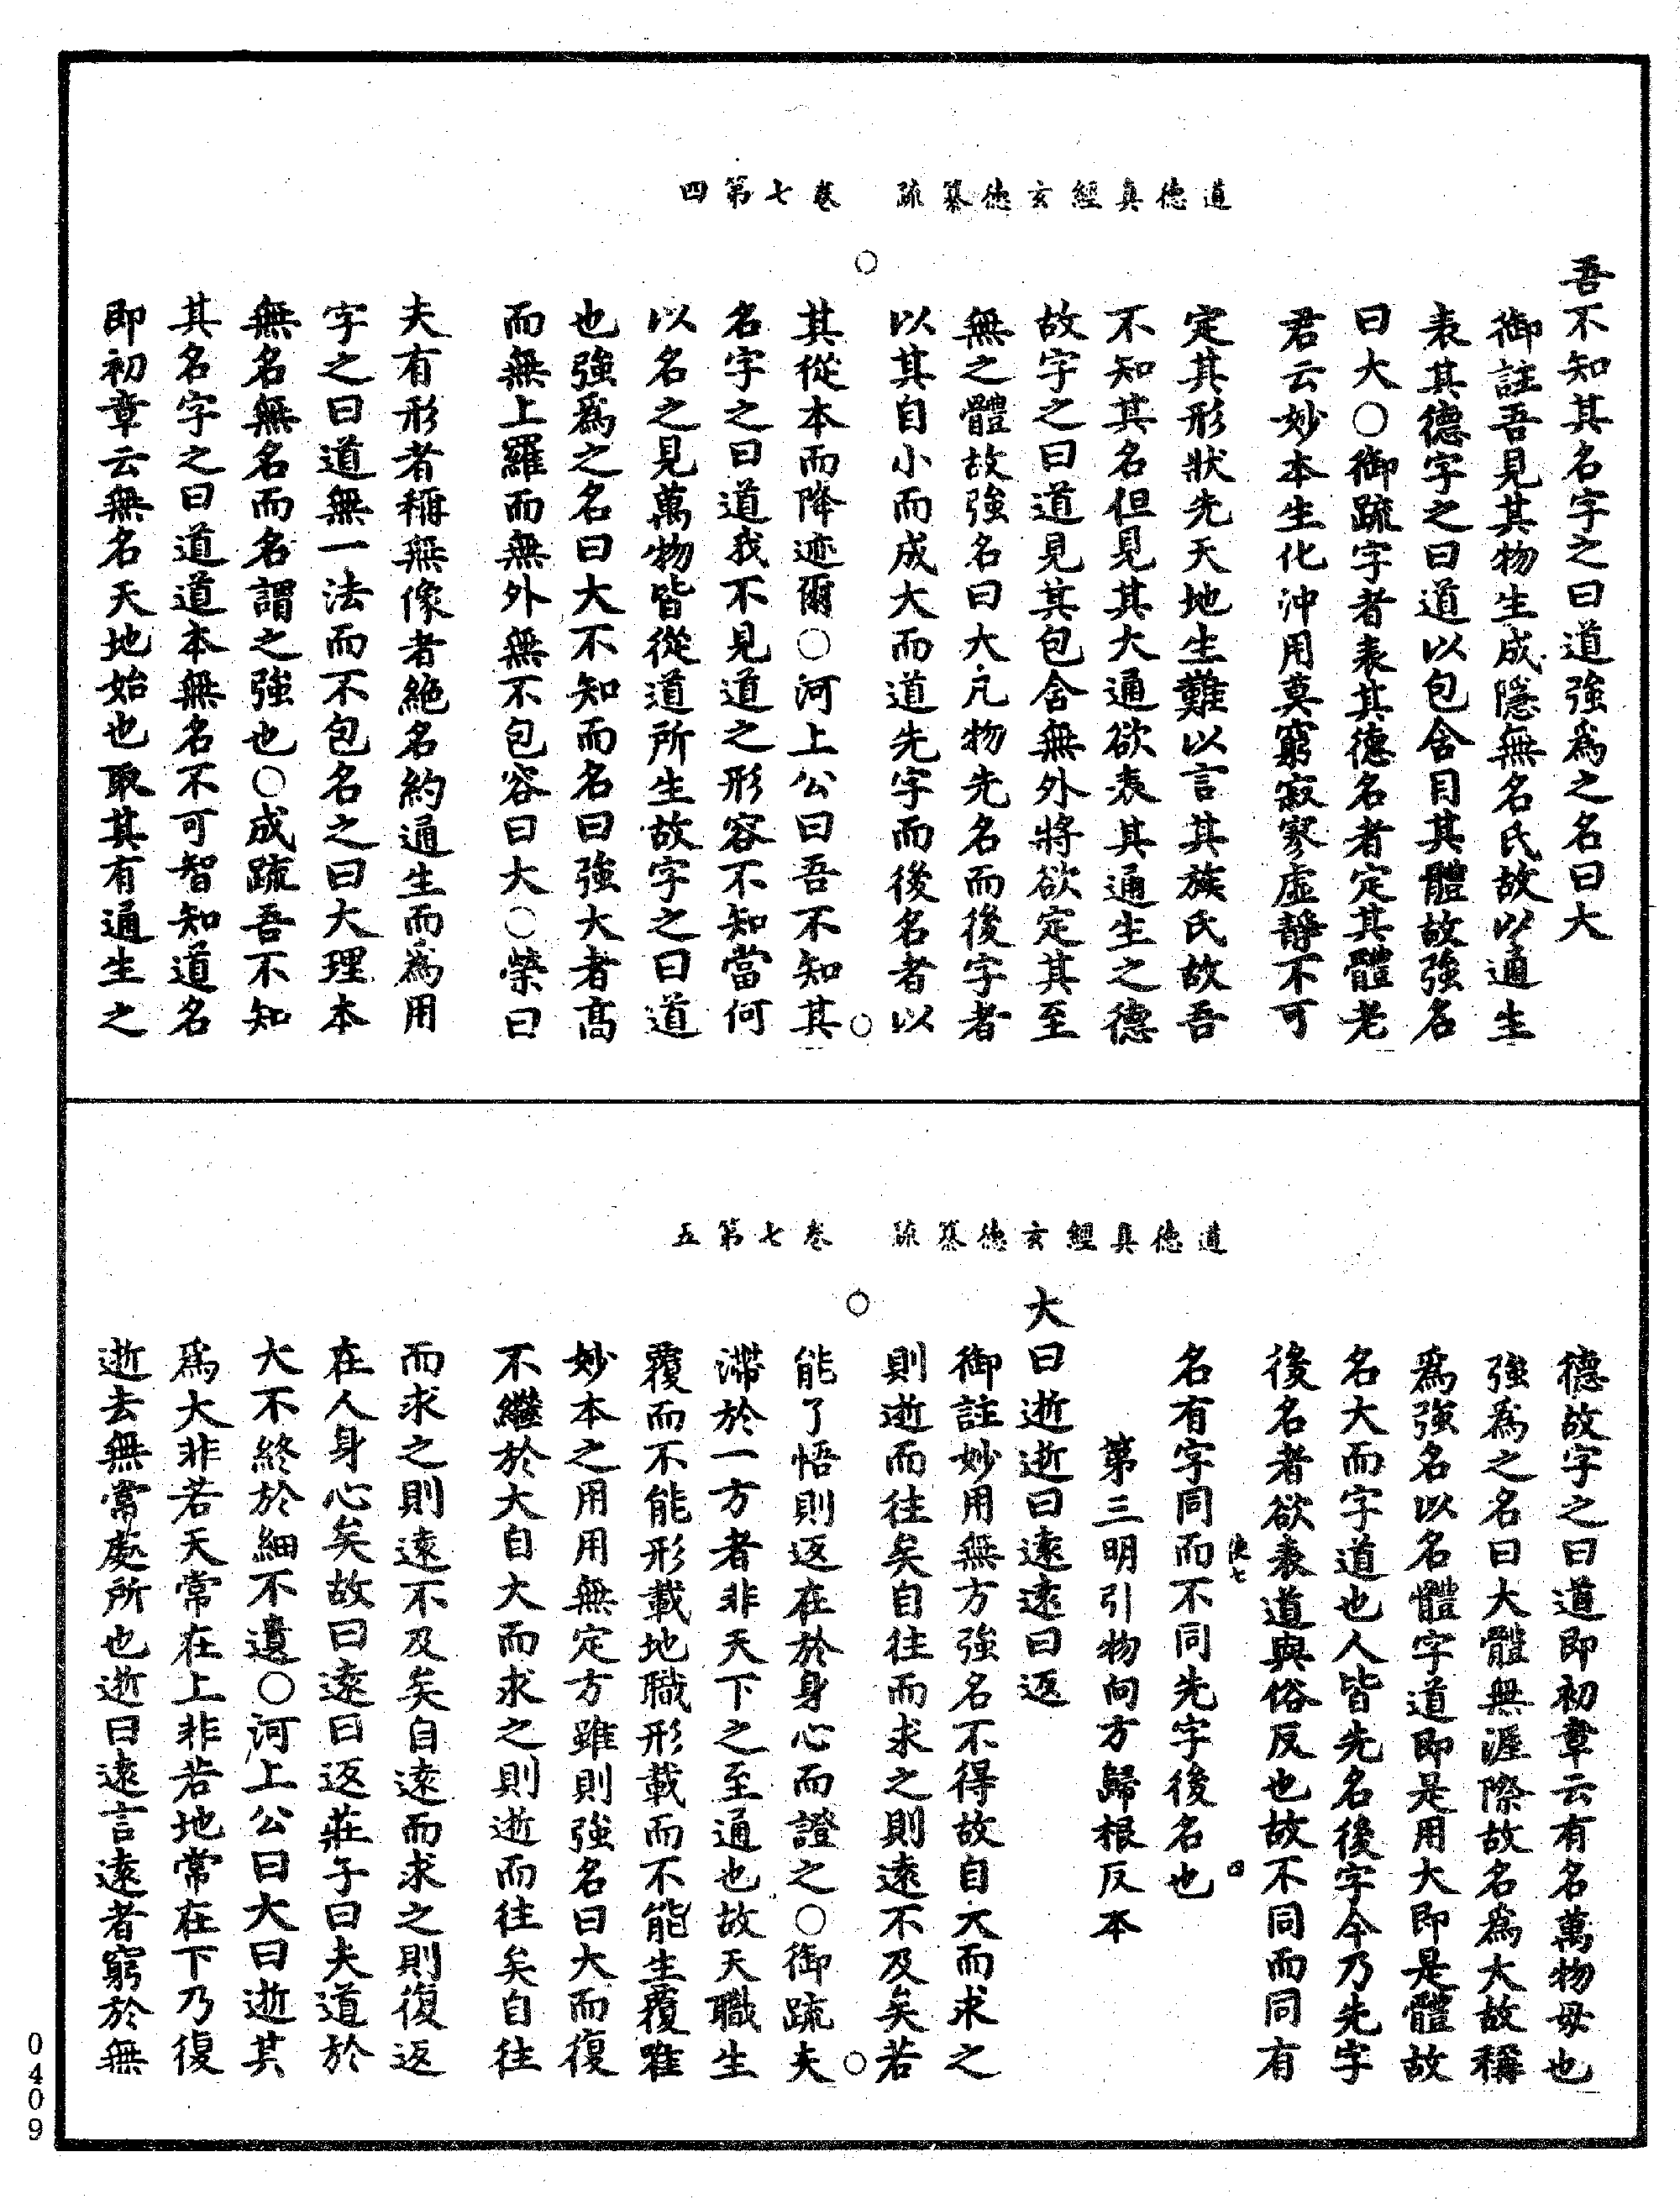 道德真經玄德纂疏　卷七第四
吾不知其名字之曰道強爲之名曰大
御註吾見其物生成隱無名氏故以通生
表其德字之曰道以包含目其體故強名
曰大○御疏字者表其德名者定其體老
君云妙本生化沖用莫窮寂寥虛靜不可
定其形狀先天地生難以言其族氏故吾
不知其名但見其大通欲表其通生之德
故字之曰道見其包含無外將欲定其至
無之體故強名曰大凡物先名而後字者
以其自小而成大而道先字而後名者以
其從本而降迹爾○河上公曰吾不知其
名字之曰道我不見道之形容不知當何
以名之見萬物皆從道所生故字之曰道
也強爲之名曰大不知而名曰強大者髙
而無上羅而無外無不包容曰大○榮曰
夫有形者稱無像者絶名約通生而爲用
字之曰道無一法而不包名之曰大理本
無名無名而名謂之強也○成疏吾不知
其名字之曰道道本無名不可智知道名
即初章云無名天地始也取其有通生之
道德真經玄德纂疏　卷七第五
德故字之曰道即初章云有名萬物母也
強爲之名曰大體無涯際故名爲大故稱
爲強名以名體字道即是用大即是體故
名大而字道也人皆先名後字今乃先字
後名者欲表道與俗反也故不同而同有
名有字同而不同先字後名也
第三明引物向方歸根反本
大曰逝逝曰遠遠曰返
御註妙用無方強名不得故自大而求之
則逝而往矣自往而求之則遠不及矣若
能了悟則返在於身心而證之○御疏夫
滯於一方者非天下之至通也故天職生
覆而不能形載地職形載而不能生覆唯
妙本之用用無定方雖則強名曰大而復
不繼於大自大而求之則逝而往矣自往
而求之則遠不及矣自遠而求之則復返
在人身心矣故曰遠曰返莊子曰夫道於
大不終於細不遺○河上公曰大曰逝其
爲大非若天常在上非若地常在下乃復
逝去無常處所也逝曰遠言遠者窮於無
0409